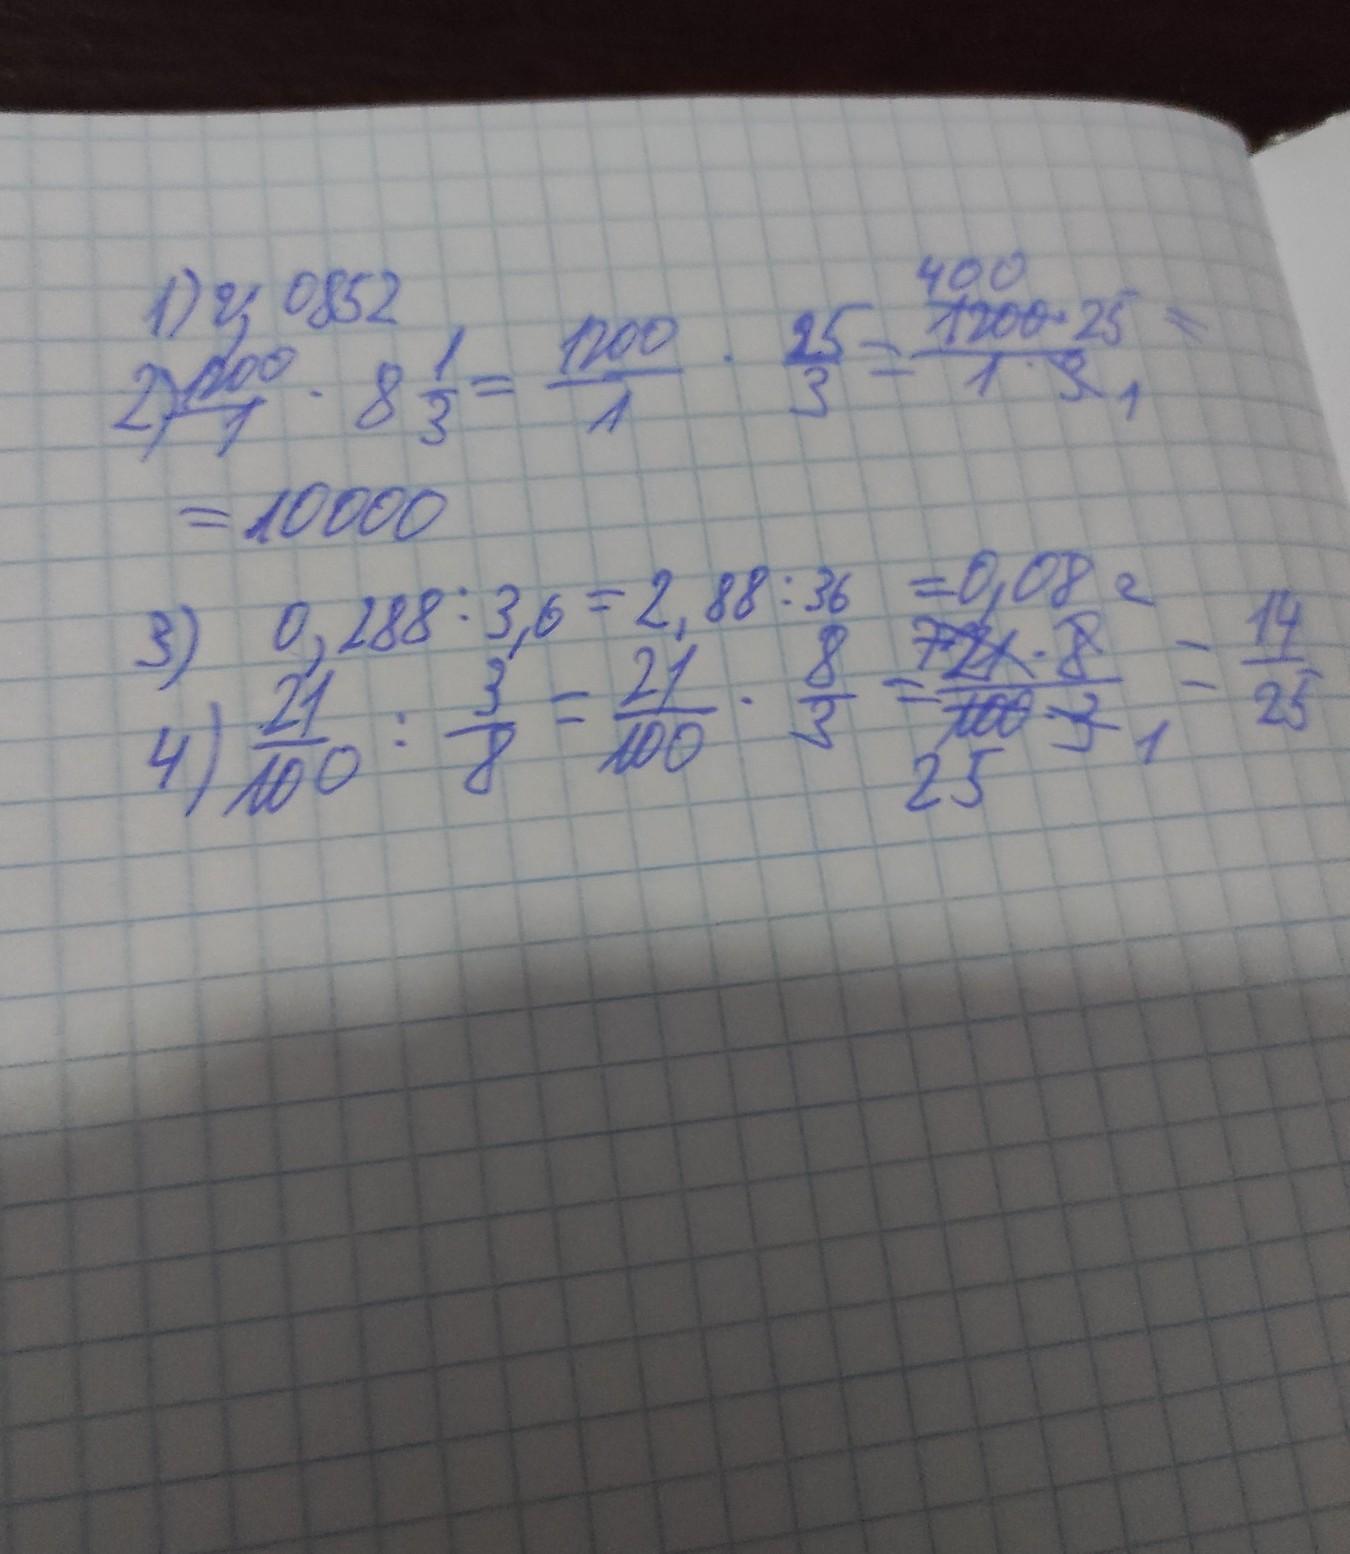 1) 4,0852
2) 1200/1 · 8 1/3 = 1200/1 · 25/3 = 400 1200 · 25 / 1 · 3 1 =
= 10000
3) 0,288 : 3,6 = 2,88 : 36 = 0,08 г
4) 21/100 : 3/8 = 21/100 · 8/3 = 7 21 · 8 / 100 · 3 1 = 14/25
25